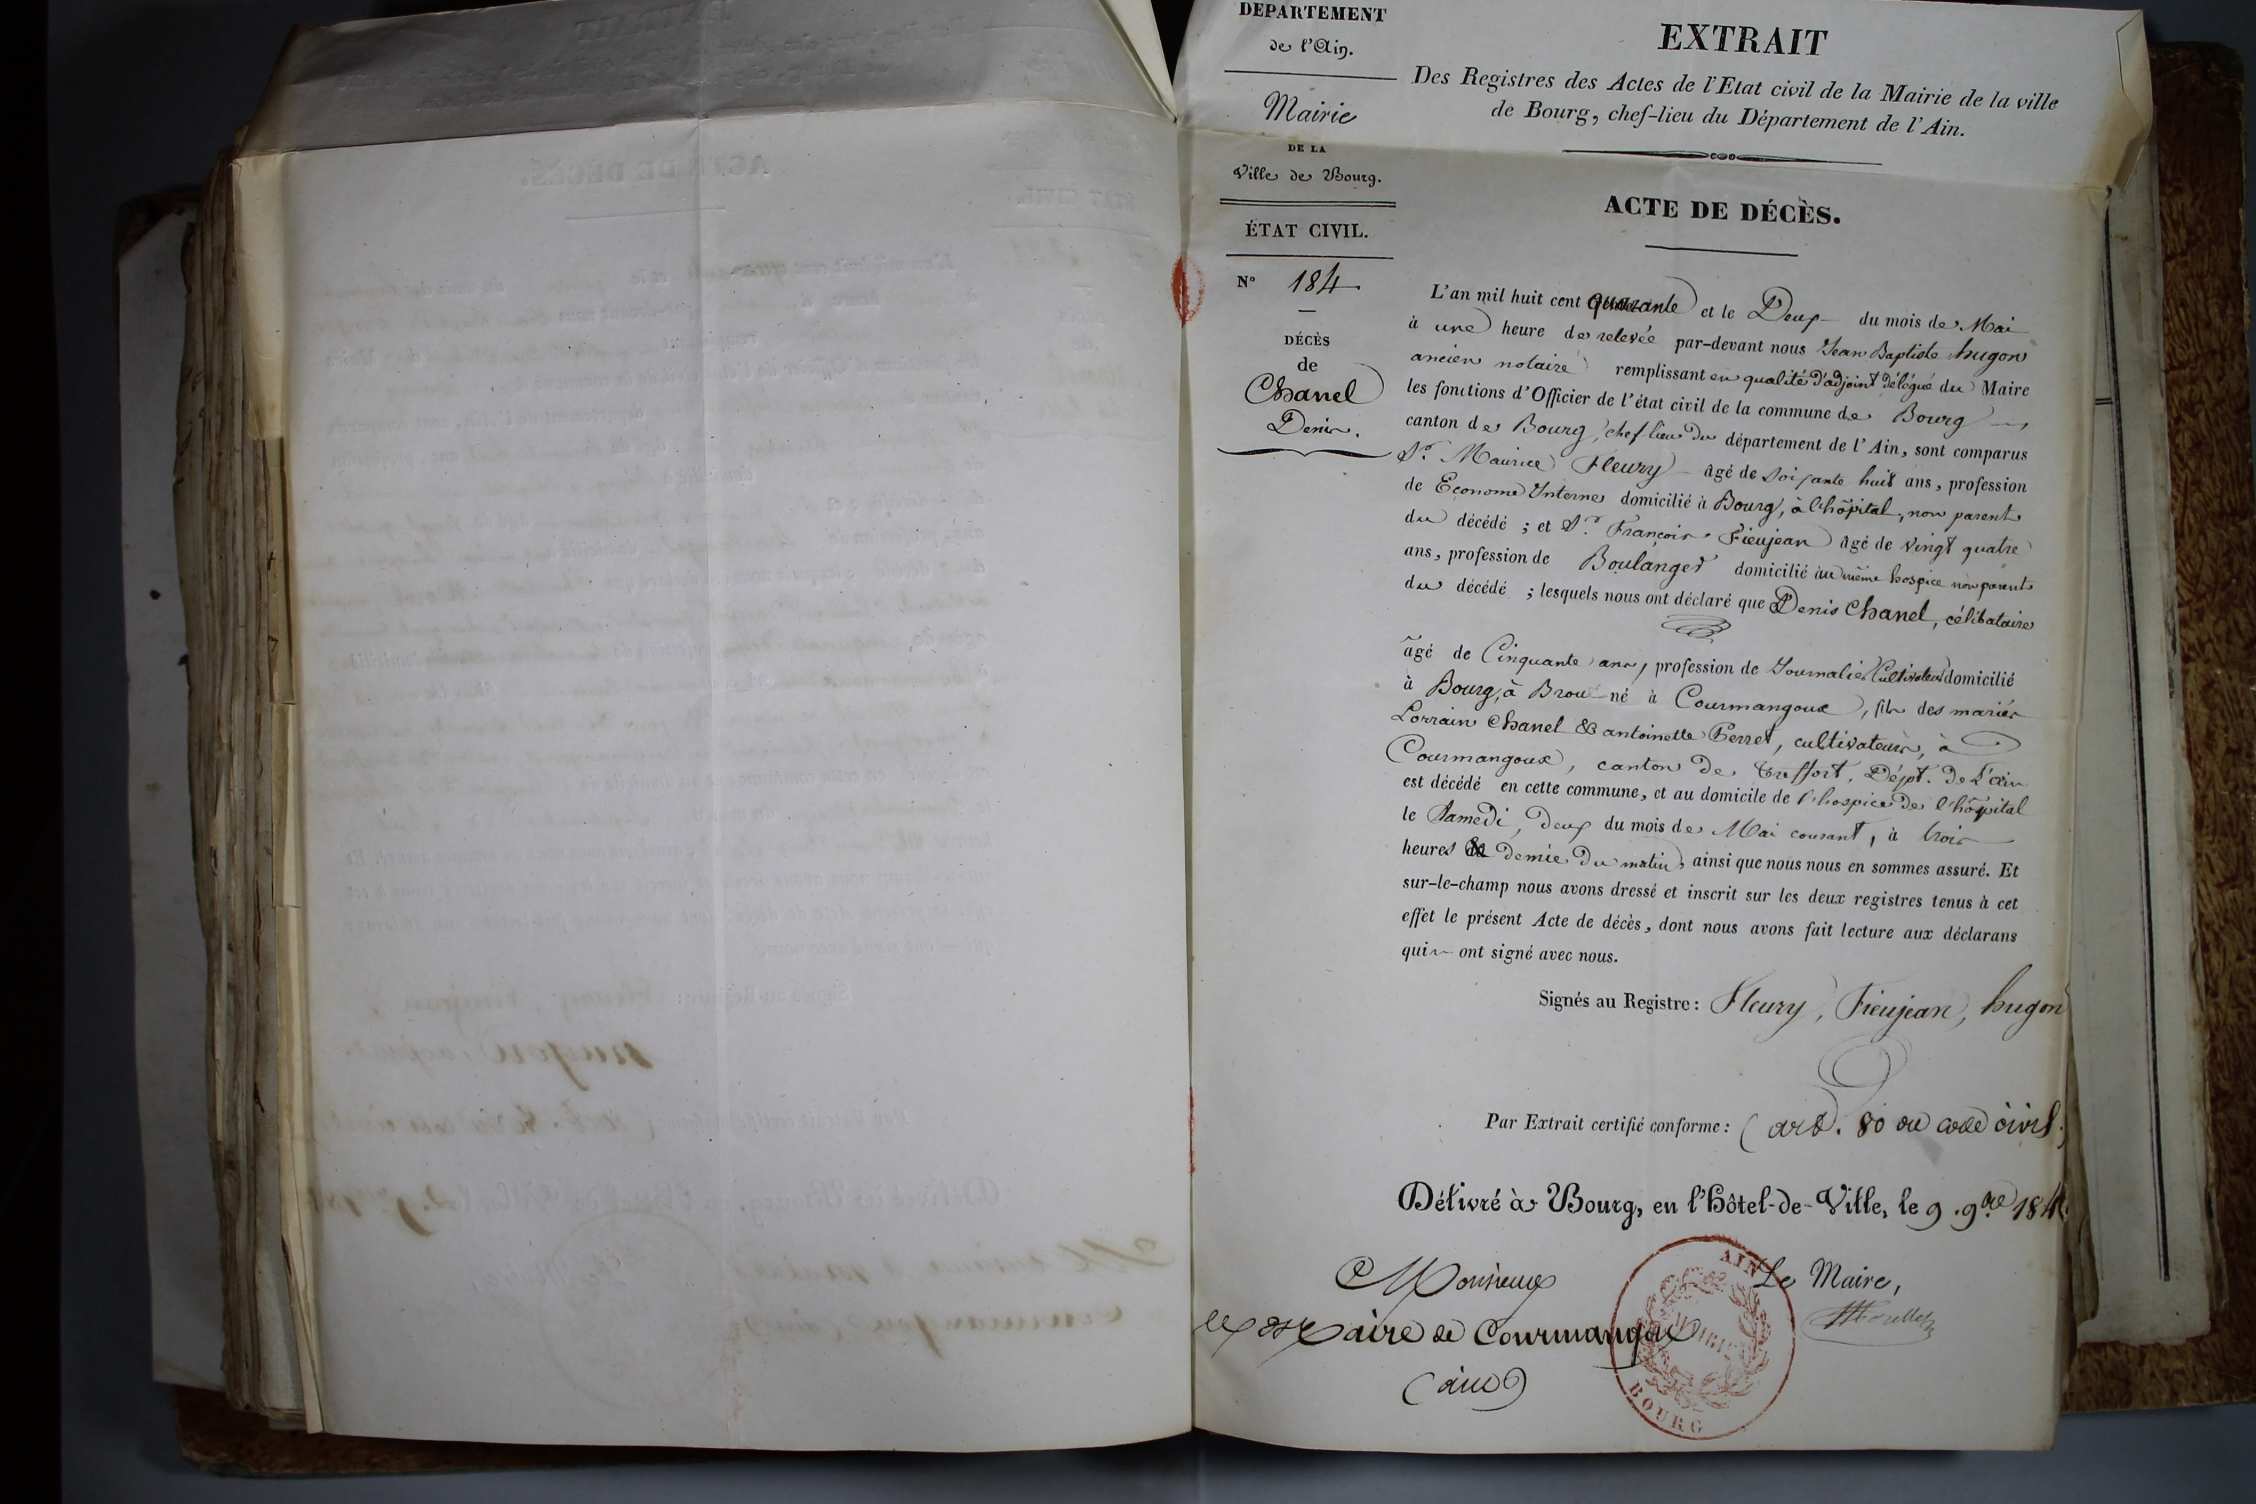 DEPARTEMENT
de l'Ain.
Mairie
DE LA
Ville de Bourg.
ÉTAT CIVIL.
N° 184
DÉCÈS
de
Chanel
Denis.
EXTRAIT
Des Registres des Actes de l'Etat civil de la Mairie de la ville
de Bourg, chef-lieu du Département de l'Ain.
ACTE DE DÉCÈS.
L'an mil huit cent quarante et le Deux du mois de Mai
à une heure de relevée par-devant nous Jean Baptiste hugon
ancien notaire remplissant en qualité d'adjoint délégué du Maire
les fonctions d'Officier de l'état civil de la commune de Bourg
canton de Bourg, chef lieu du département de l'Ain, sont comparus
Sr. Maurice Fleury âgé de soixante huit ans, profession
de Econome Interne domicilié à Bourg, à l'hôpital, non parent
du décédé ; et Sr. François Fieujean âgé de vingt quatre
ans, profession de Boulanger domicilié au même hospice non parent
du décédé ; lesquels nous ont déclaré que Denis Chanel, célibataire
âgé de Cinquante ans, profession de Journalier Cultivateur domicilié
à Bourg, à Brou né à Courmangoux, fils des mariés
Lorrain Chanel & antoinette Perret, cultivateurs, à
Courmangoux, canton de treffort. Dépt. de L'ain
est décédé en cette commune, et au domicile de l'hospice de l'hôpital
le Samedi, deux du mois de Mai courant, à trois
heures & demie du matin, ainsi que nous nous en sommes assuré. Et
sur-le-champ nous avons dressé et inscrit sur les deux registres tenus à cet
effet le présent Acte de décès, dont nous avons fait lecture aux déclarans
qui ont signé avec nous.
Signés au Registre : Fleury, Fieujean, hugon
Par Extrait certifié conforme : (art. 80 du code civil.)
Délivré à Bourg, en l'Hôtel-de-Ville, le 9. 9bre 184
Monsieur
Le Maire,
Maire de Courmangoux
(ain)
AIN
MAIRIE
BOURG